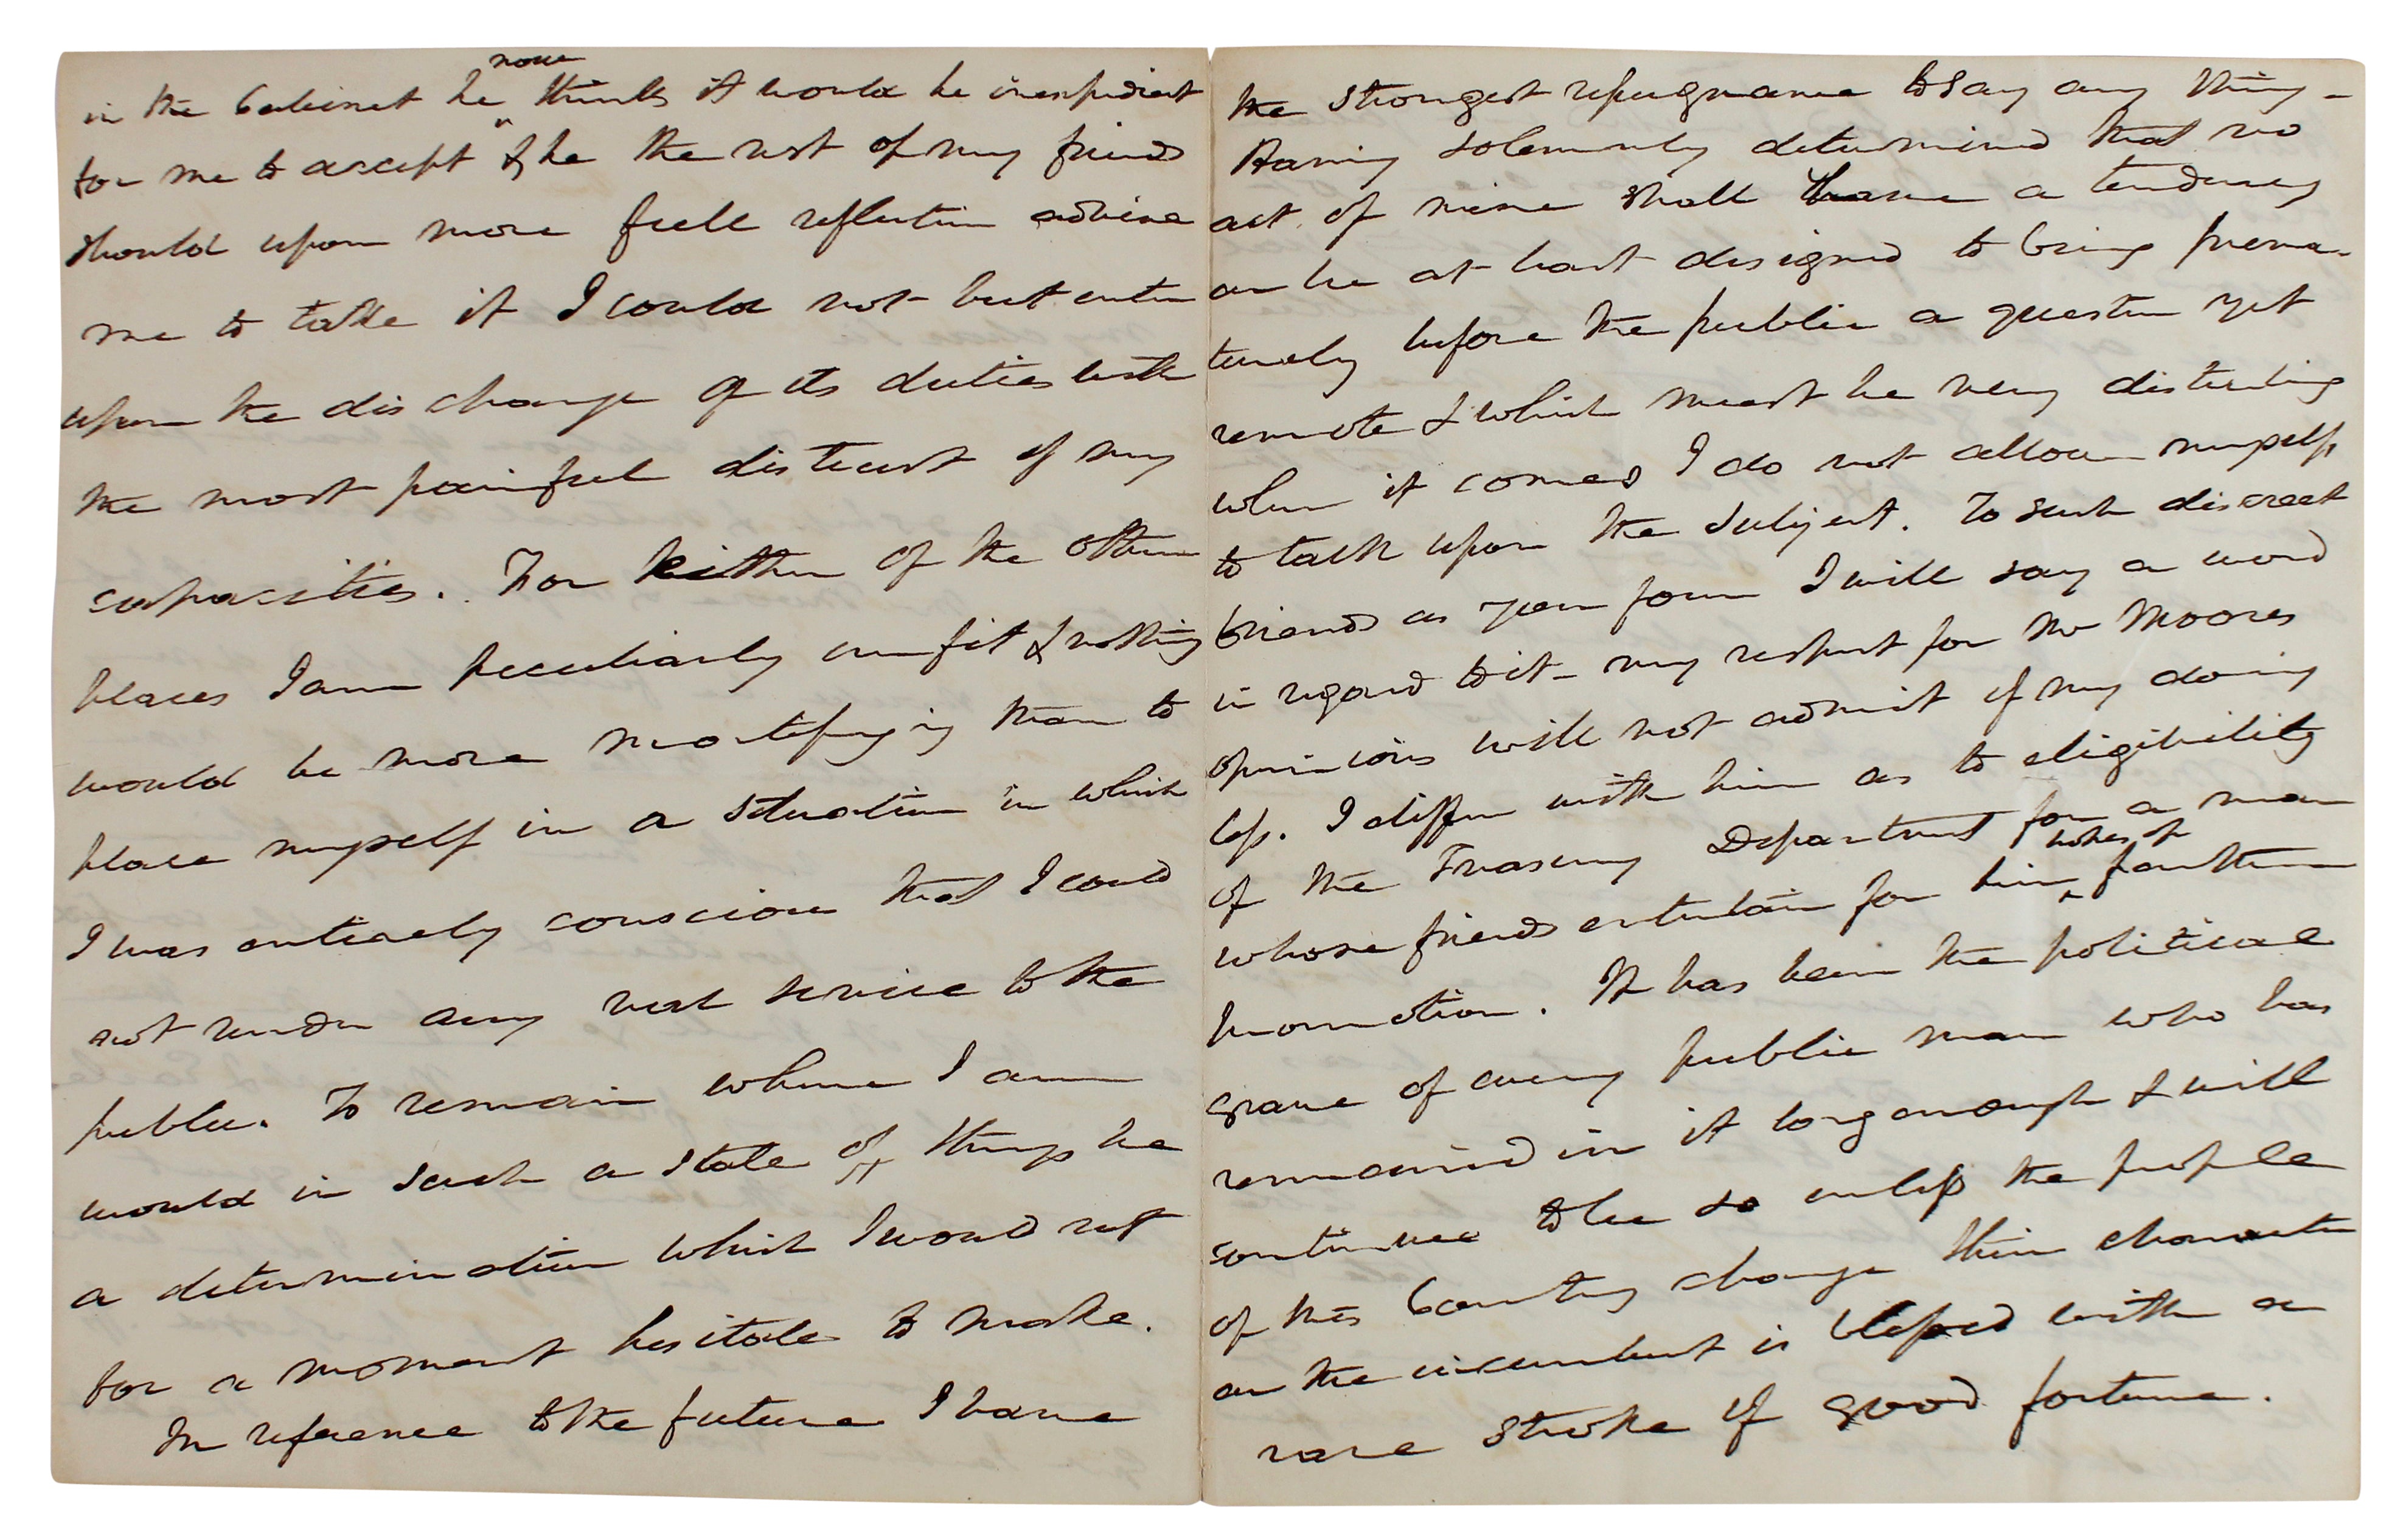 in the Cabinet he now thinks it would be inexpedient
for me to accept & he the rest of my friends
should upon more full reflection advise
me to take it I could not but enter
upon the discharge of its duties with
the most painful distrust of my
capacities. For either of the other
places I am peculiarly unfit & nothing
would be more mortifying than to
place myself in a situation in which
I was entirely conscious that I could
not render any real service to the
public. To remain where I am
would in such a state of things be
a determination which I would not
for a moment hesitate to make.
In reference to the future I have
the strongest repugnance to say any thing -
Having solemnly determined that no
act of mine shall have a tendency
or be at least designed to bring prema-
turely before the public a question yet
remote & which must be very disturbing
when it comes I do not allow myself
to talk upon the subject. To such discreet
friends as you four I will say a word
in regard to it - my respect for Mr Moores
opinions will not admit of my doing
less. I differ with him as to eligibility
of the Treasury Department for a man
whose friends entertain for him hopes of farther
promotion. It has been the political
grave of every public man who has
remained in it long enough & will
continue to be so unless the people
of this Country change their character
or the incumbent is blessed with a
rare stroke of good fortune.